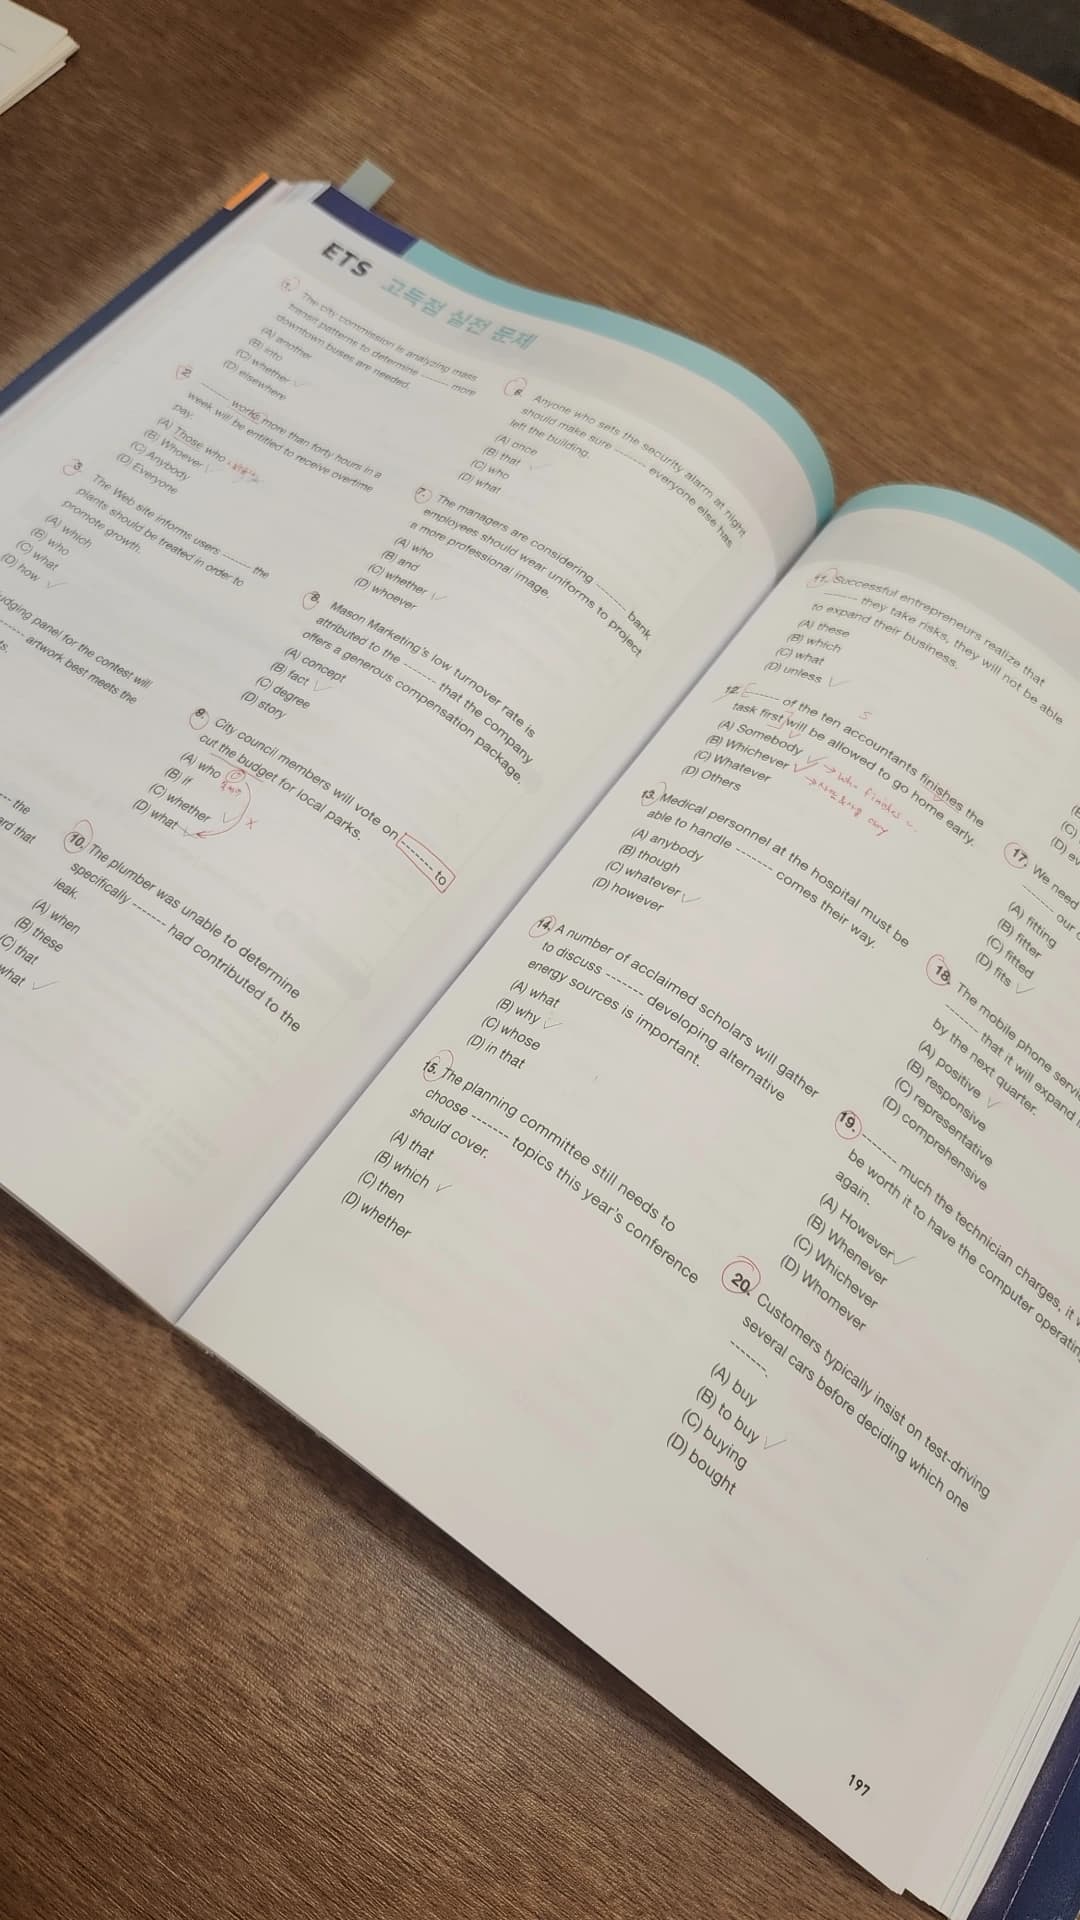 ETS 고득점 실전 문제
1. The city commission is analyzing mass
transit patterns to determine ------- more
downtown buses are needed.
(A) another
(B) into
(C) whether
(D) elsewhere
2. ------- works more than forty hours in a
week will be entitled to receive overtime
pay.
(A) Those who
(B) Whoever
(C) Anybody
(D) Everyone
3. The Web site informs users ------- the
plants should be treated in order to
promote growth.
(A) which
(B) who
(C) what
(D) how
judging panel for the contest will
------- artwork best meets the
ts.
------- the
ard that
6. Anyone who sets the security alarm at night
should make sure ------- everyone else has
left the building.
(A) once
(B) that
(C) who
(D) what
7. The managers are considering ------- bank
employees should wear uniforms to project
a more professional image.
(A) who
(B) and
(C) whether
(D) whoever
8. Mason Marketing's low turnover rate is
attributed to the ------- that the company
offers a generous compensation package.
(A) concept
(B) fact
(C) degree
(D) story
9. City council members will vote on ------- to
cut the budget for local parks.
(A) who
(B) if
(C) whether
(D) what
10. The plumber was unable to determine
specifically ------- had contributed to the
leak.
(A) when
(B) these
(C) that
what
11. Successful entrepreneurs realize that
------- they take risks, they will not be able
to expand their business.
(A) these
(B) which
(C) what
(D) unless
12. ------- of the ten accountants finishes the
task first will be allowed to go home early.
(A) Somebody → who finishes
(B) Whichever
(C) Whatever
(D) Others
13. Medical personnel at the hospital must be
able to handle ------- comes their way.
(A) anybody
(B) though
(C) whatever
(D) however
14. A number of acclaimed scholars will gather
to discuss ------- developing alternative
energy sources is important.
(A) what
(B) why
(C) whose
(D) in that
15. The planning committee still needs to
choose ------- topics this year's conference
should cover.
(A) that
(B) which
(C) then
(D) whether
(C)
(D) ev
17. We need
------- our
(A) fitting
(B) fitter
(C) fitted
(D) fits
18. The mobile phone servic
------- that it will expand
by the next quarter.
(A) positive
(B) responsive
(C) representative
(D) comprehensive
19. ------- much the technician charges, it w
be worth it to have the computer operatin
again.
(A) However
(B) Whenever
(C) Whichever
(D) Whomever
20. Customers typically insist on test-driving
several cars before deciding which one
-------.
(A) buy
(B) to buy
(C) buying
(D) bought
197